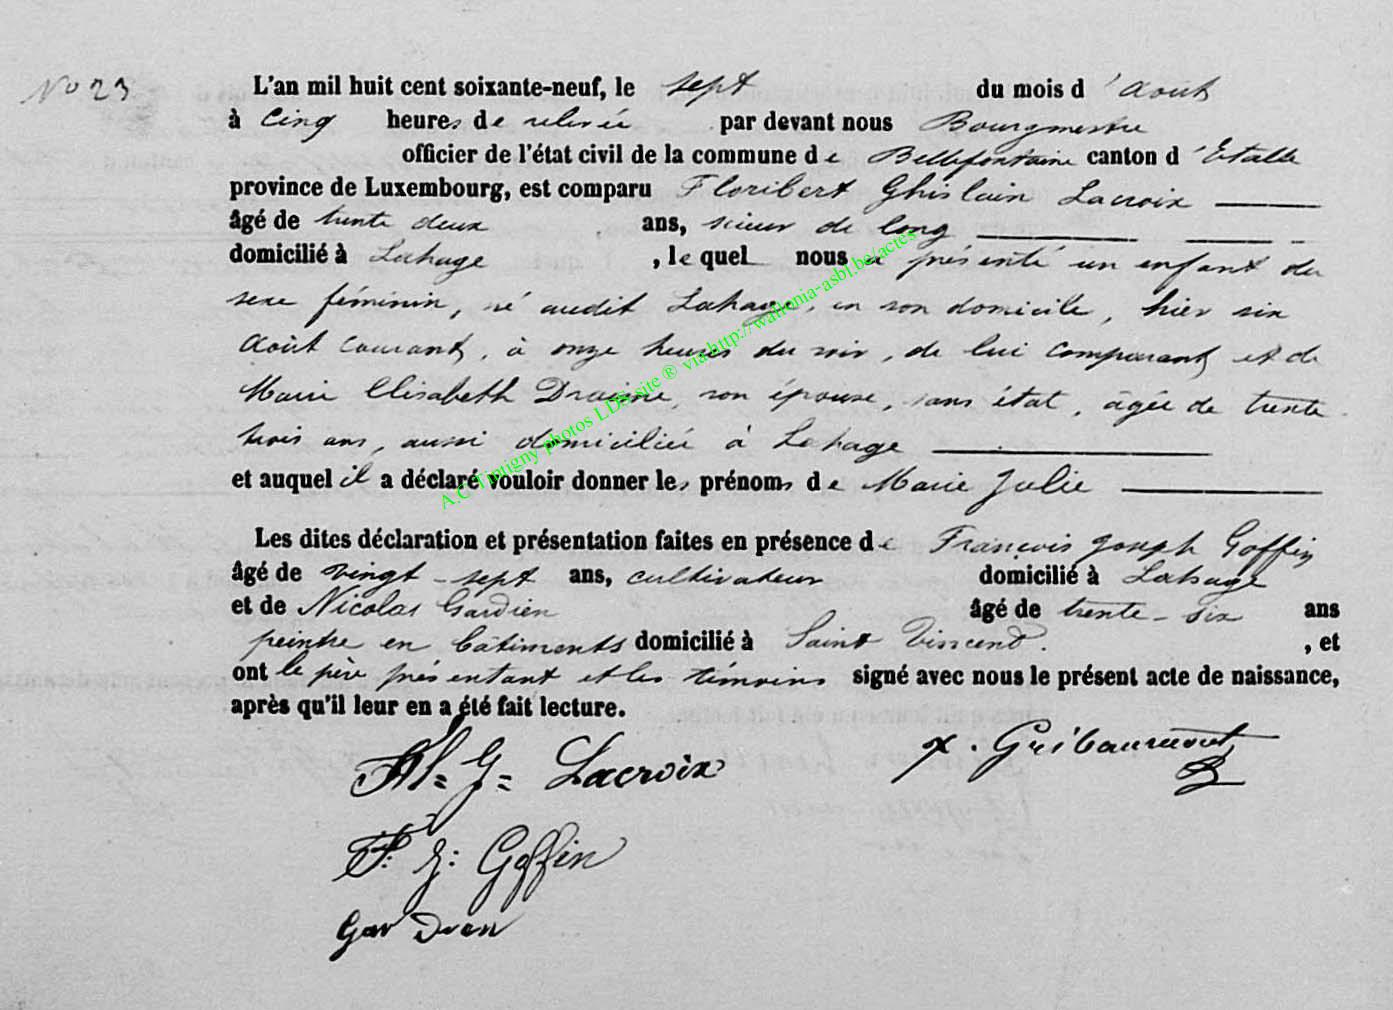 No 23
L'an mil huit cent soixante-neuf, le sept du mois d'août
à cinq heures de relevée par devant nous Bourgmestre
officier de l'état civil de la commune de Bellefontaine canton d'Etalle
province de Luxembourg, est comparu Floribert Ghislain Lacroix
âgé de trente deux ans, scieur de long
domicilié à Lahage, lequel nous a présenté un enfant du
sexe féminin, né audit Lahage, en son domicile, hier six
août courant, à onze heures du soir, de lui comparant et de
Marie Elisabeth Draime, son épouse, sans état, âgée de trente
trois ans, aussi domiciliée à Lahage
et auquel il a déclaré vouloir donner les prénoms de Marie Julie
Les dites déclaration et présentation faites en présence de François Joseph Goffin
âgé de vingt-sept ans, cultivateur domicilié à Lahage
et de Nicolas Gardien âgé de trente-six ans
peintre en bâtiments domicilié à Saint Vincent. , et
ont le père présentant et les témoins signé avec nous le présent acte de naissance,
après qu'il leur en a été fait lecture.
Fl= G= Lacroix
F: J: Goffin
A.C Tintigny photos LDS site ® via http://wallonia-asbl.be/actes